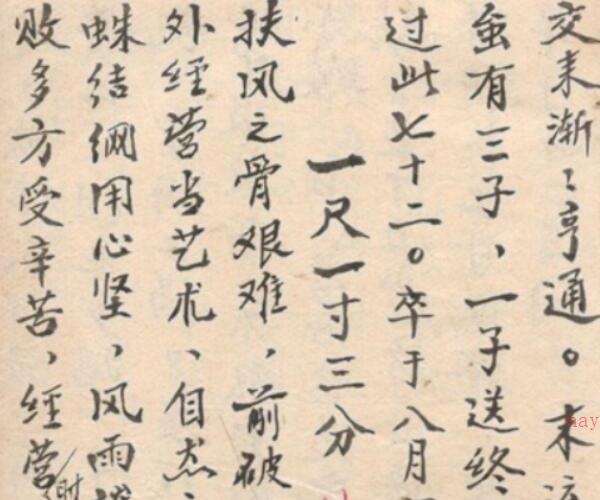 交来渐々亨通。末运
虽有三子，一子送终
过此七十二。卒于八月
一尺一寸三分
扶风之骨艰难，前破
外经营当艺术、自态
蛛结网用心坚，风雨
败多方受辛苦，经营
时
nay